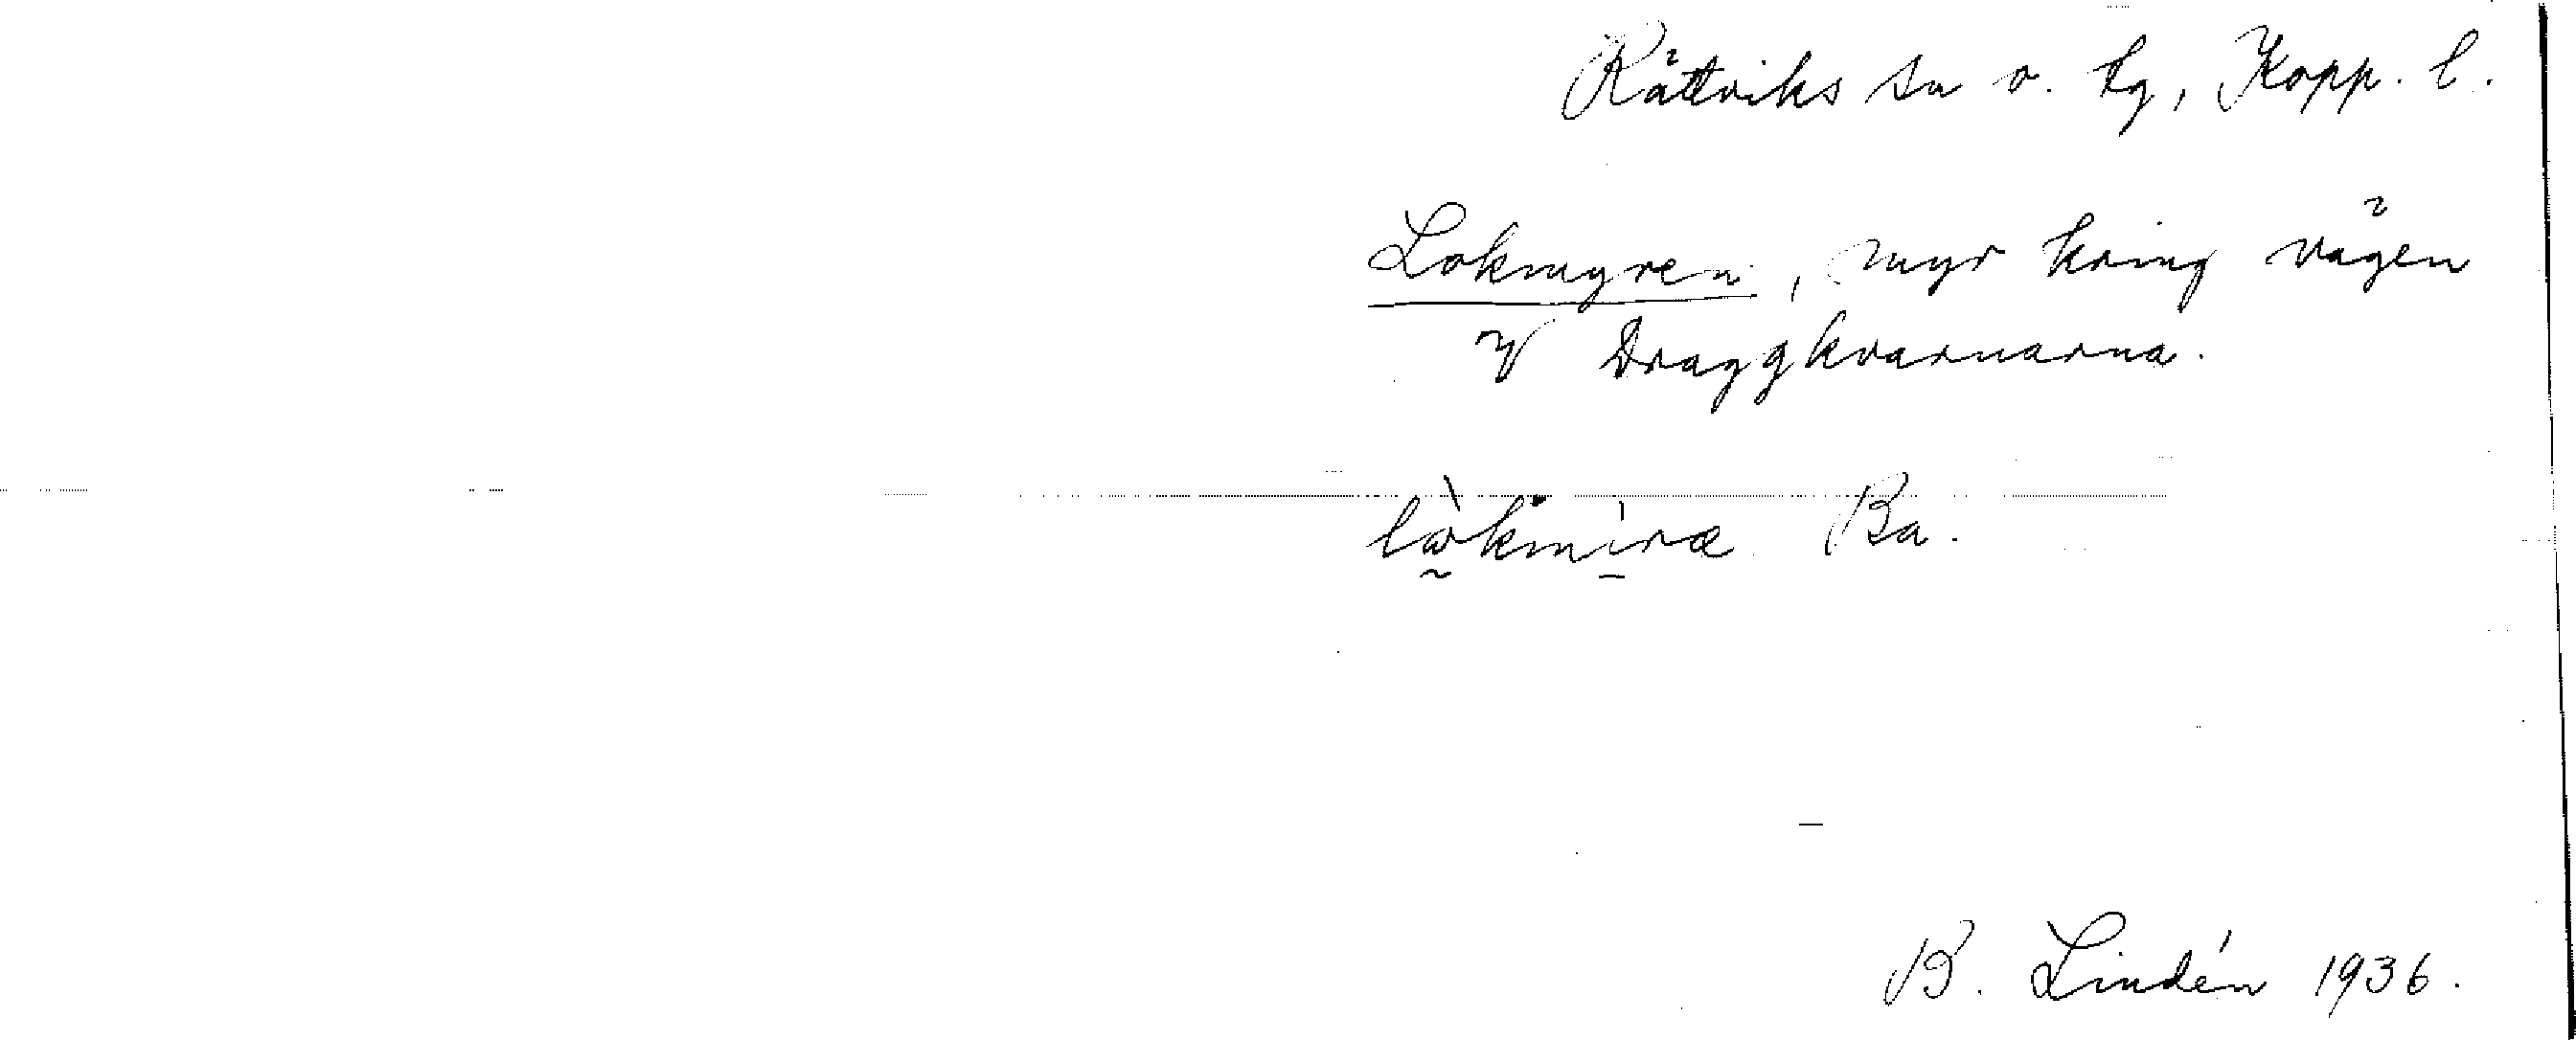 Rättviks sn o. tg, Kopp. l.
Lokmyren, myr kring vägen
V Draggkvarnarna.
lὼkmìræ Ba.
B. Lindén 1936.